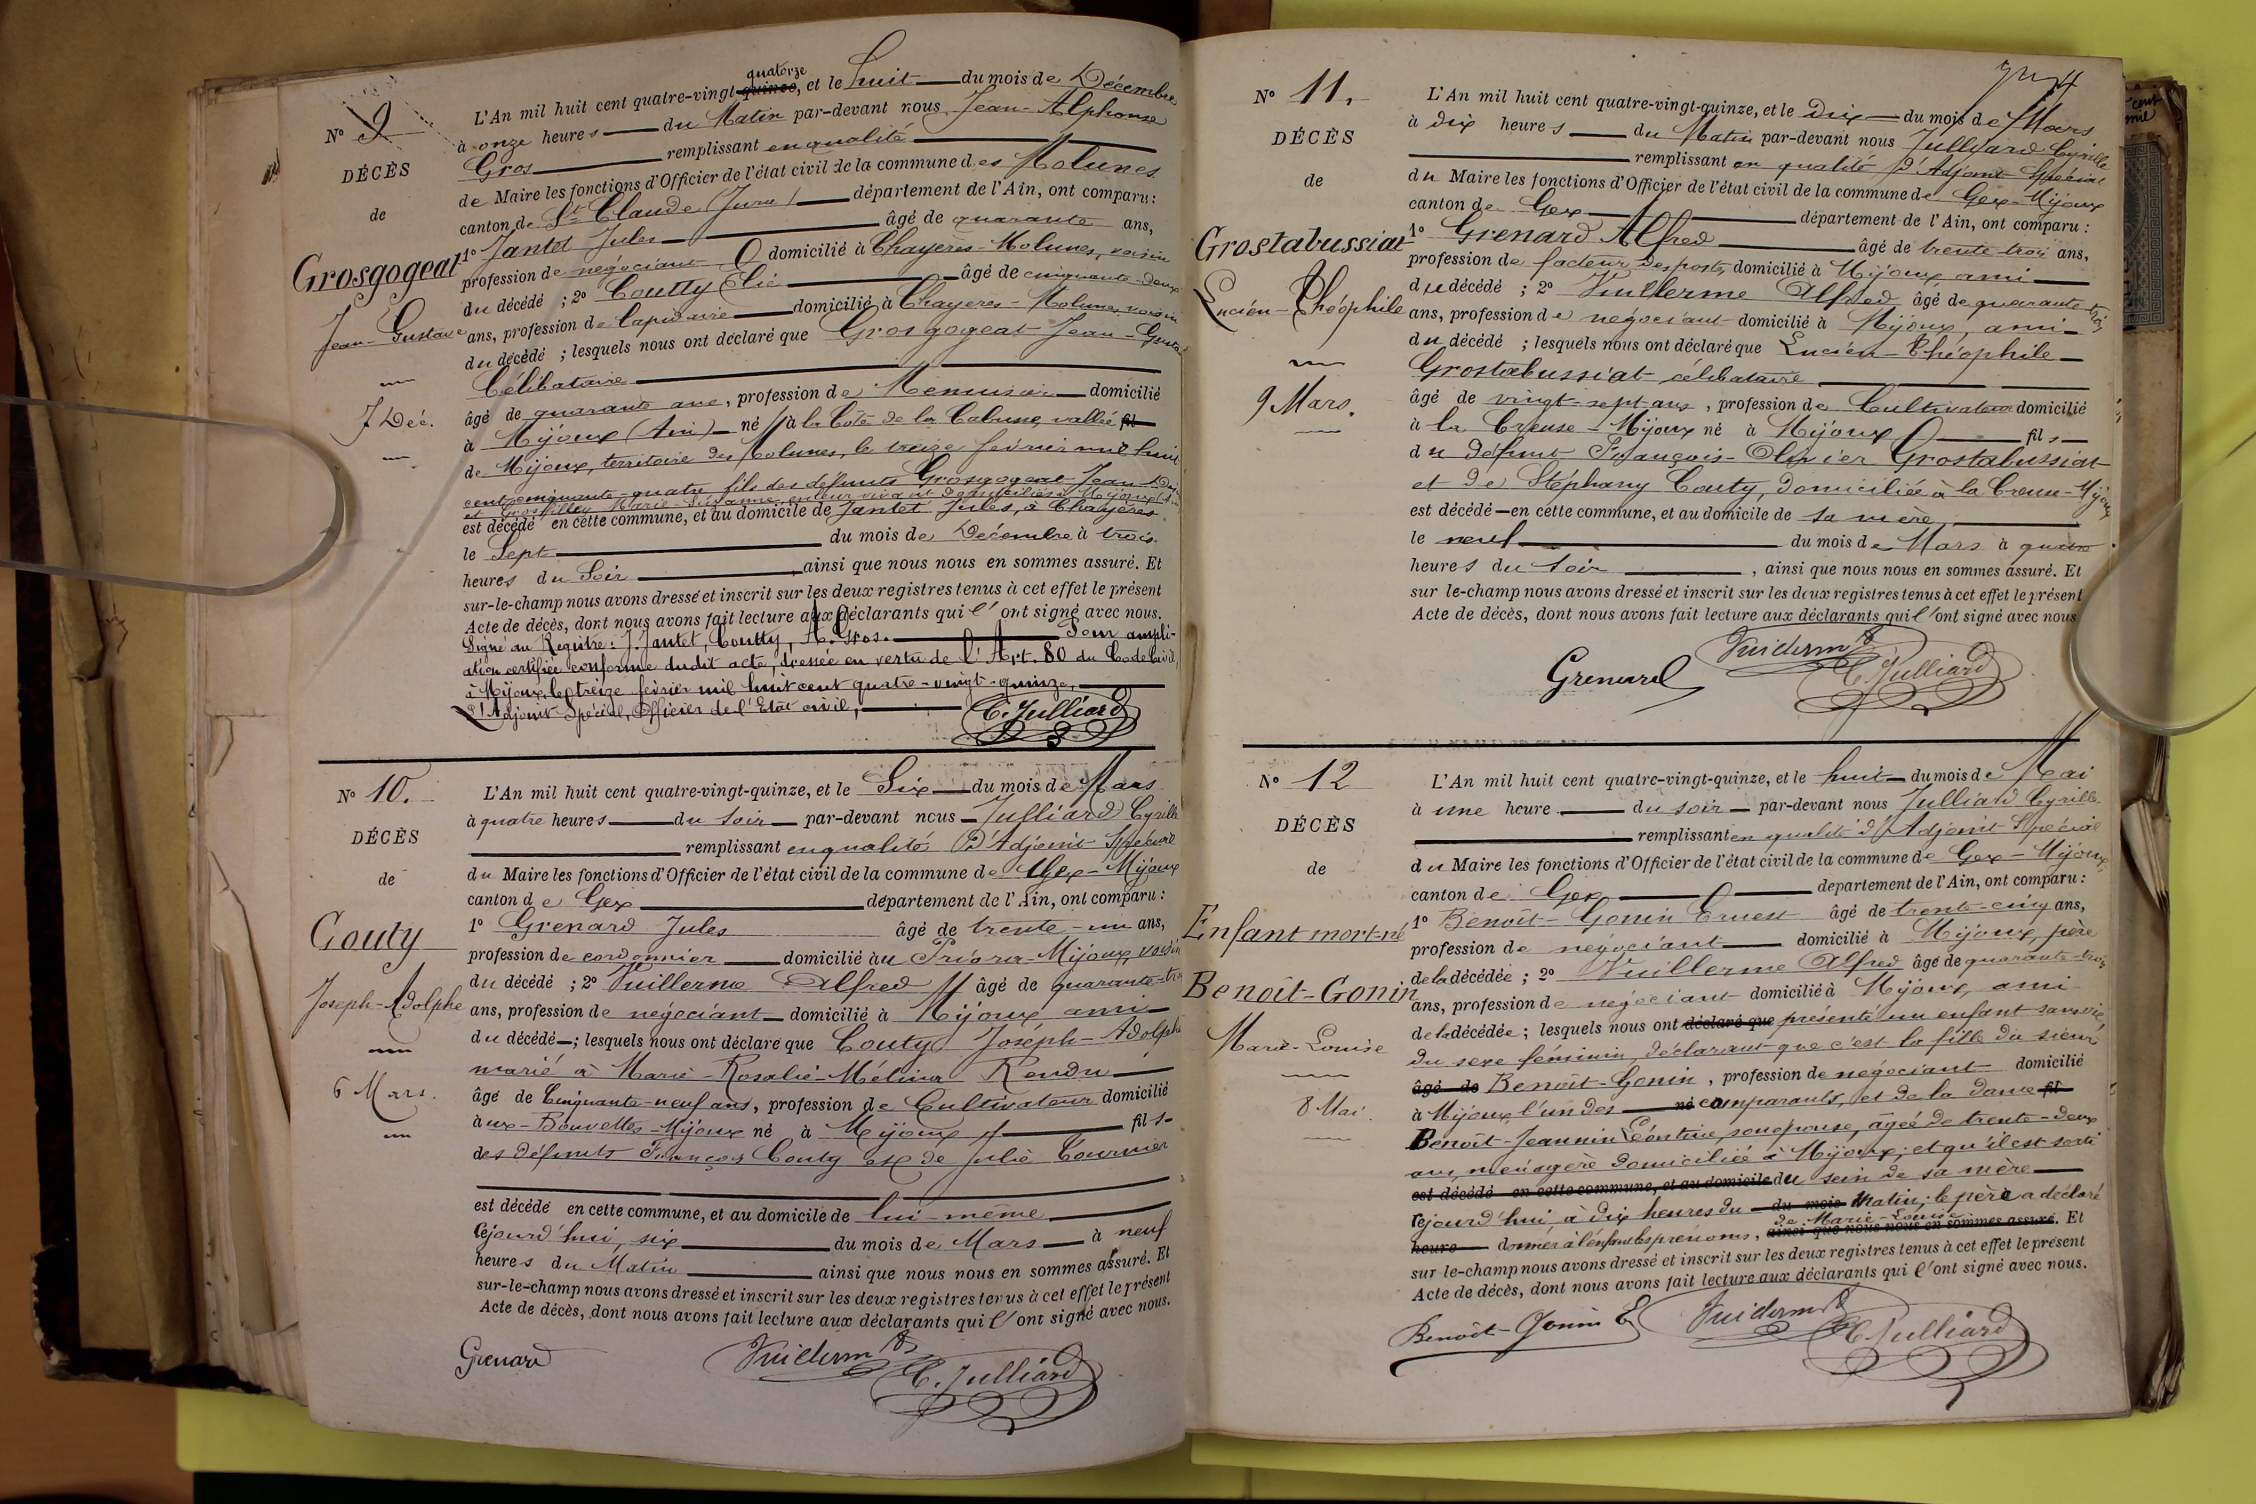 N° 9
DÉCÈS
de
Grosgogeat
Jean-Gustave
7 Déc.
quatorze
L'An mil huit cent quatre-vingt-quinze, et le huit du mois de Décembre
à onze heures du Matin par-devant nous Jean-Alphonse
Gros remplissant en qualité
de Maire les fonctions d'Officier de l'état civil de la commune des Molunes
canton de St Claude (Jura) département de l'Ain, ont comparu:
1° Jantet Jules âgé de quarante ans,
profession de négociant domicilié à Chayères-Molunes, voisin
du décédé ; 2° Coutty Elie âgé de cinquante-deux
ans, profession de lapidaire domicilié à Chayères-Molunes, voisin
du décédé ; lesquels nous ont déclaré que Grosgogeat Jean-Gustave
Célibataire
âgé de quarante ans, profession de Menuisier domicilié
à Mijoux (Ain) né à la Côte de la Cabune, vallée fil
de Mijoux, territoire des Molunes, le treize février mil huit
cent cinquante-quatre fils des défunts Grosgogeat Jean
et Marie en leur vivant domiciliés à Mijoux (Ain)
est décédé en cette commune, et au domicile de Jantet Jules, à Chayères
le Sept du mois de Décembre à trois
heures du Soir ainsi que nous nous en sommes assuré. Et
sur-le-champ nous avons dressé et inscrit sur les deux registres tenus à cet effet le présent
Acte de décès, dont nous avons fait lecture aux déclarants qui l'ont signé avec nous.
Signé au Registre: J. Jantet, Coutty, A. Gros. Pour ampli-
ation certifiée conforme dudit acte, dressée en vertu de l'Art. 80 du Code Civil,
à Mijoux, le treize février mil huit cent quatre-vingt-quinze,
L'Adjoint Spécial, Officier de l'Etat civil,
C. Julliard
N° 10.
DÉCÈS
de
Couty
Joseph-Adolphe
6 Mars.
L'An mil huit cent quatre-vingt-quinze, et le Six du mois de Mars
à quatre heures du soir par-devant nous Julliard Cyrille
remplissant en qualité d'Adjoint Spécial
du Maire les fonctions d'Officier de l'état civil de la commune de Gex-Mijoux
canton de Gex département de l'Ain, ont comparu :
1° Grenard Jules âgé de trente-un ans,
profession de cordonnier domicilié au Mijoux, voisin
du décédé ; 2° Vuillerme Alfred âgé de quarante-trois
ans, profession de négociant domicilié à Mijoux ami
du décédé ; lesquels nous ont déclaré que Couty Joseph-Adolphe
marié à Marie-Rosalie-Mélina Rendu
âgé de Cinquante-neuf ans, profession de Cultivateur domicilié
aux Bouvettes-Mijoux né à Mijoux fils
des défunts François Couty et de Julie Tournier
est décédé en cette commune, et au domicile de lui-même
cejourd'hui, six du mois de Mars à neuf
heures du Matin ainsi que nous nous en sommes assuré. Et
sur-le-champ nous avons dressé et inscrit sur les deux registres tenus à cet effet le présent
Acte de décès, dont nous avons fait lecture aux déclarants qui l'ont signé avec nous.
Grenard
C. Julliard
N° 11.
DÉCÈS
de
Grostabussiat
Lucien-Théophile
9 Mars.
L'An mil huit cent quatre-vingt-quinze, et le Dix du mois de Mars
à dix heures du Matin par-devant nous Julliard Cyrille
remplissant en qualité d'Adjoint Spécial
du Maire les fonctions d'Officier de l'état civil de la commune de Gex-Mijoux
canton de Gex département de l'Ain, ont comparu :
1° Grenard Alfred âgé de trente-trois ans,
profession de facteur des postes domicilié à Mijoux ami
du décédé ; 2° Vuillerme Alfred, âgé de quarante-trois
ans, profession de négociant domicilié à Mijoux, ami
du décédé ; lesquels nous ont déclaré que Lucien-Théophile
Grostabussiat célibataire
âgé de vingt-sept ans, profession de Cultivateur domicilié
à la Creuse-Mijoux né à Mijoux fils
du défunt François-Olivier Grostabussiat
et de Stéphany Couty, domiciliée à la Creuse-Mijoux
est décédé en cette commune, et au domicile de sa mère,
le neuf du mois de Mars à quatre
heures du soir, ainsi que nous nous en sommes assuré. Et
sur le-champ nous avons dressé et inscrit sur les deux registres tenus à cet effet le présent
Acte de décès, dont nous avons fait lecture aux déclarants qui l'ont signé avec nous
Grenard
C. Julliard
N° 12
DÉCÈS
de
Enfant mort-né
Benoît-Gonin
Marie-Louise
8 Mai.
L'An mil huit cent quatre-vingt-quinze, et le huit du mois de Mai
à une heure du soir par-devant nous Julliard Cyrille
remplissant en qualité d'Adjoint Spécial
du Maire les fonctions d'Officier de l'état civil de la commune de Gex-Mijoux
canton de Gex département de l'Ain, ont comparu :
1° Benoît-Gonin Ernest âgé de trente-cinq ans,
profession de négociant domicilié à Mijoux, père
de la décédée ; 2° Vuillerme Alfred âgé de quarante-trois
ans, profession de négociant domicilié à Mijoux, ami
de la décédée ; lesquels nous ont déclaré que présenté un enfant sans vie,
du sexe féminin, déclarant que c'est la fille du sieur
âgé de Benoît-Gonin, profession de négociant domicilié
à Mijoux l'un des né comparants, et de la dame fil
Benoît-Jeannin Léontine, son épouse, âgée de trente-deux
ans, ménagère domiciliée à Mijoux; et qu'il est sorti
est décédé en cette commune, et au domicile du sein de sa mère
cejourd'hui, à dix heures du du mois Matin; le père a déclaré
de Marie-Louise
heure donner à l'enfant les prénoms, ainsi que nous nous en sommes assuré. Et
sur le-champ nous avons dressé et inscrit sur les deux registres tenus à cet effet le présent
Acte de décès, dont nous avons fait lecture aux déclarants qui l'ont signé avec nous.
Benoît-Gonin E
C. Julliard